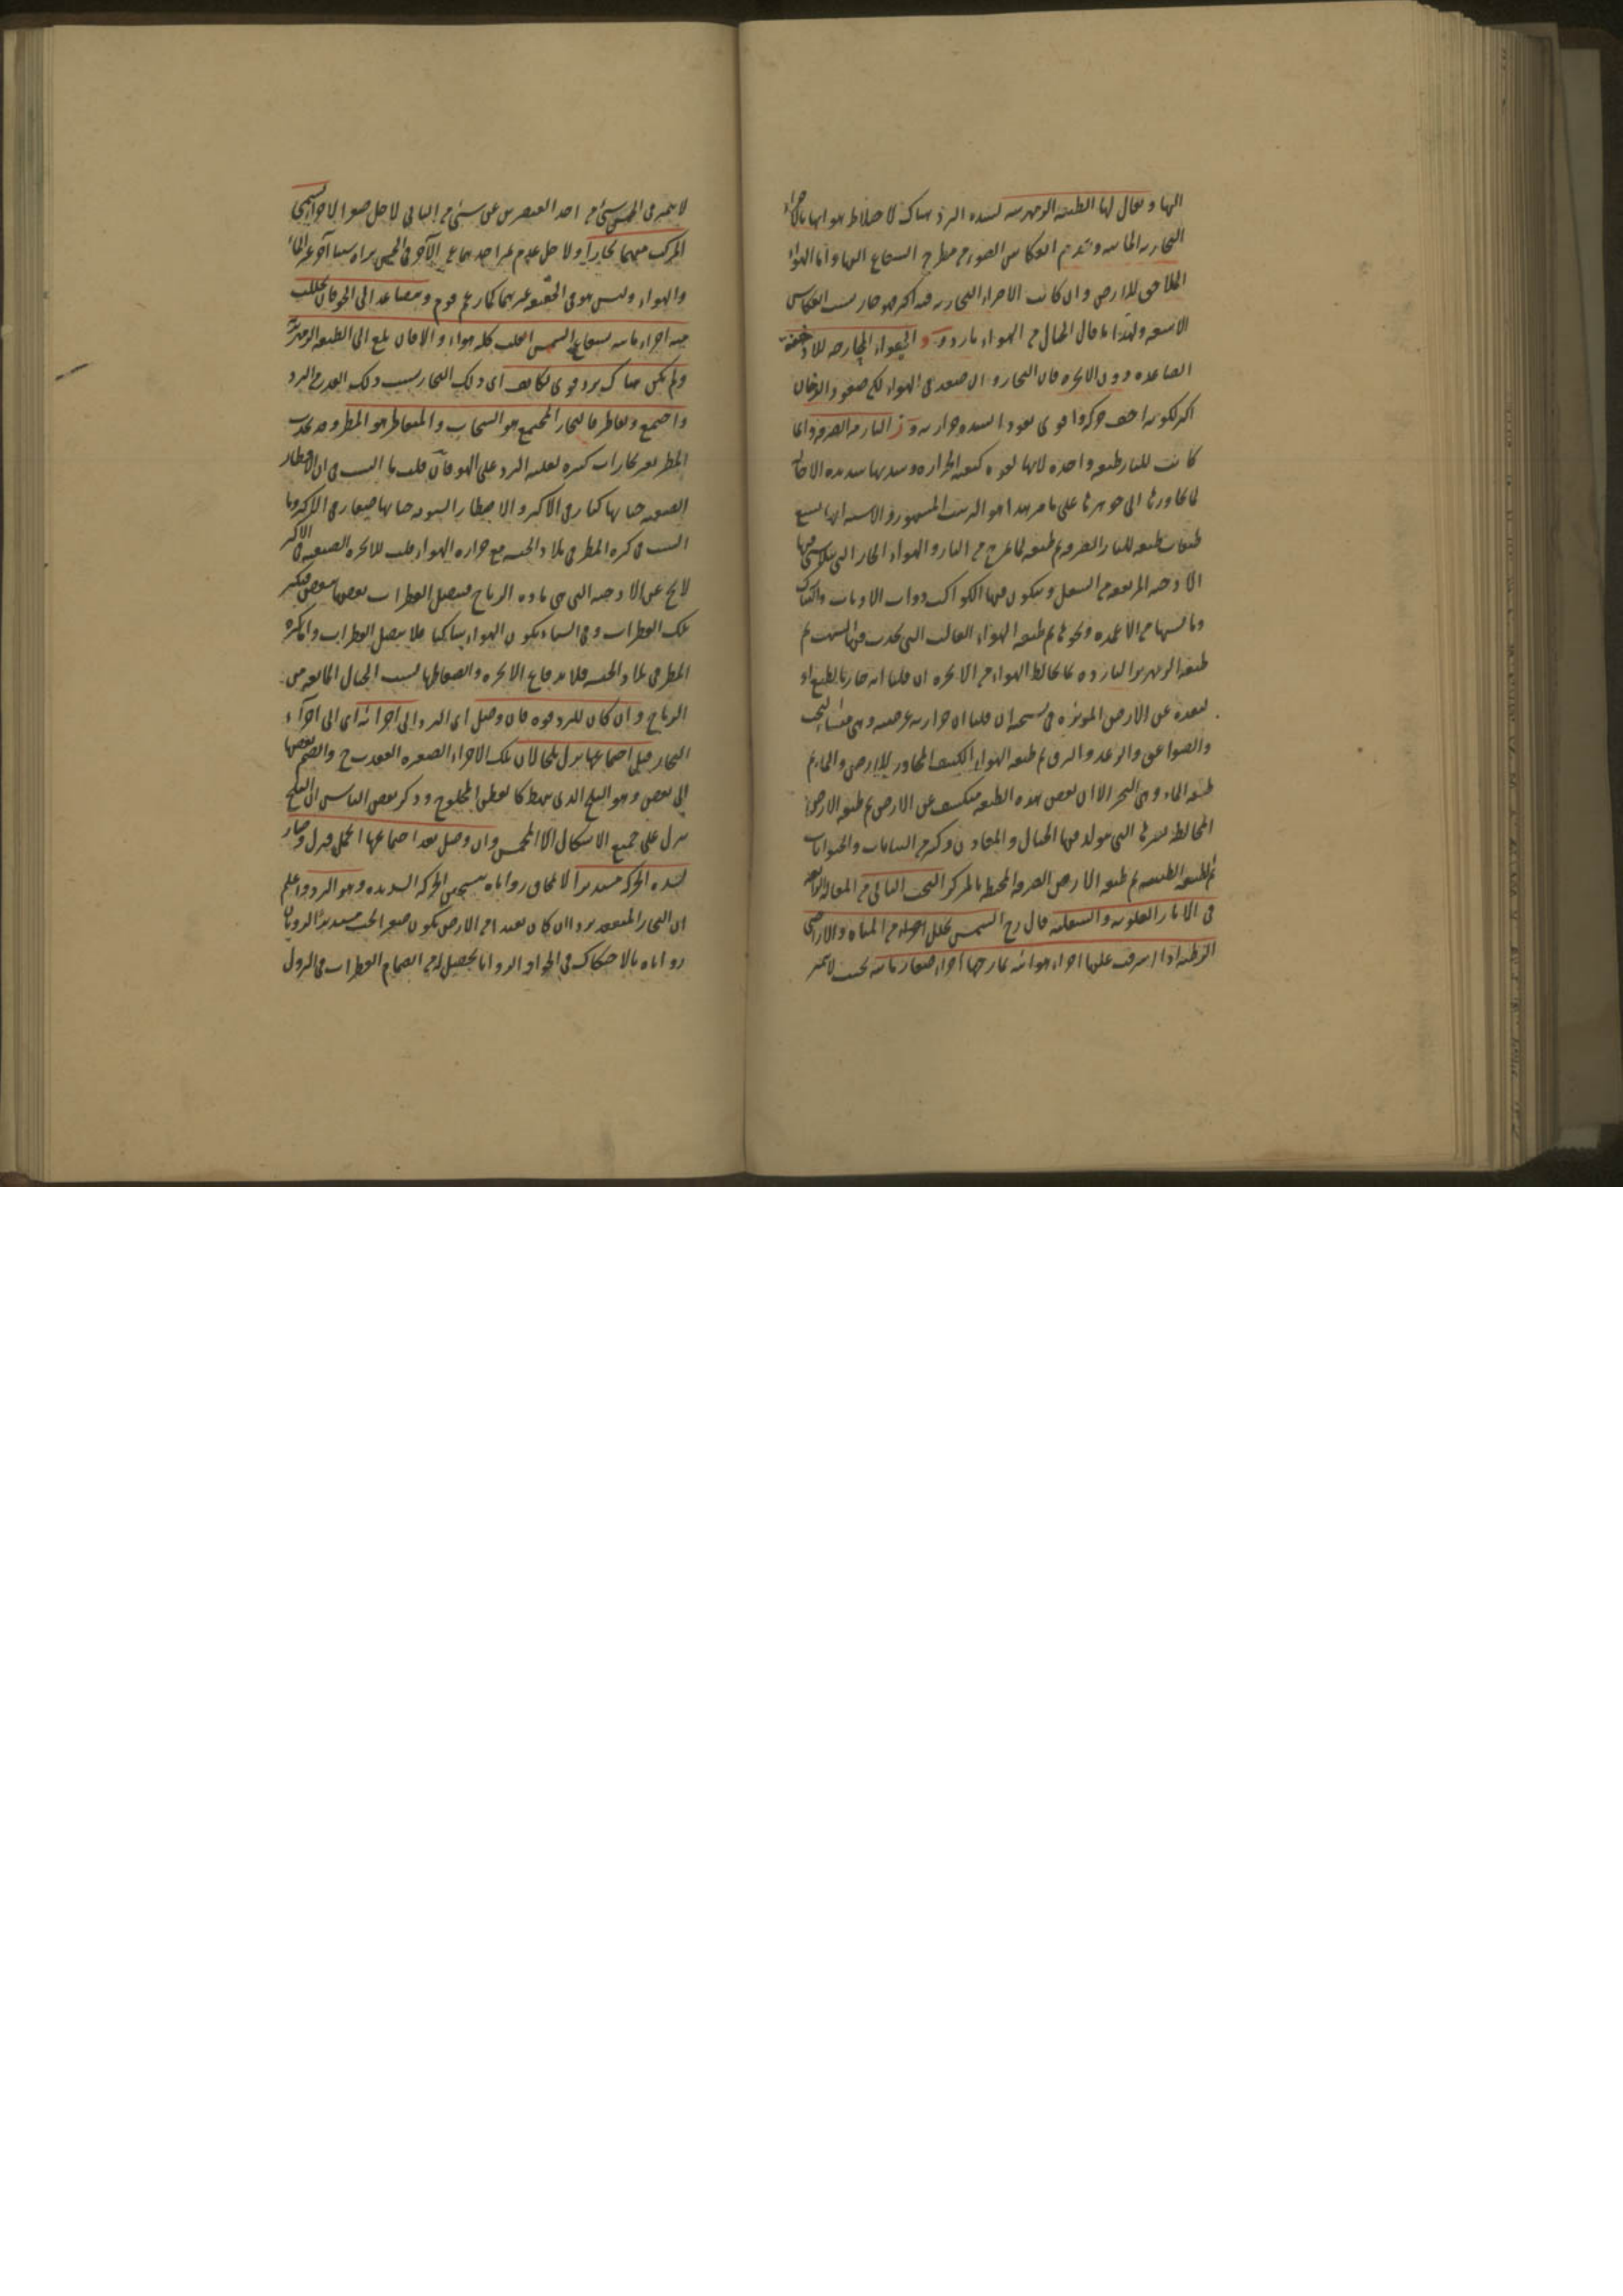 اليها ويقال لها الطبقة الزمهريرية لشدة البرد هناك لاختلاط هوائها بالاجزاء
البخارية المائية وتقدم انعكاس الضوء من مطرح الشعاع اليها واما الهواء
الملاصق للارض وان كانت الاجزاء البخارية فيه اكثر فهو حار بسبب انعكاس
الاشعة ولهذا ما قال الجبال من الهواء باردة و الهواء المجاور للادخنة
الصاعدة دون الابخرة فان البخار وان صعد في الهواء لكن صعود الدخان
اكثر لكونه اخف حركة واقوى نفوذا لشدة حرارته و النار الصرفة وانما
كانت للنار طبقة واحدة لانها لقوة كيفية الحرارة وشدتها شديدة الاحالة
لما يجاورها الى جوهرها على ما مر هذا هو الترتيب المشهور والاشبه انها تسع
طبقات طبقة للنار الصرفة ثم طبقة لما يمتزج من النار والهواء الحار التي تتلاشى فيها
الادخنة المرتفعة من السفل ويتكون فيها الكواكب ذوات الاذناب والنيازك
وما يشبهها من الاعمدة ونحوها ثم طبقة الهواء الغالب التي تحدث فيها الشهب ثم
طبقة الزمهرير الباردة بما يخالط الهواء من الابخرة ان قلنا انه حار بالطبع او
لبعده عن الارض المؤثرة في تسخينه ان قلنا ان حرارته عرضية وهي منشاء السحب
والصواعق والرعد والبرق ثم طبقة الهواء الكثيف المجاور للارض والماء ثم
طبقة الماء وهي البحر الا ان بعض هذه الطبقة منكشف عن الارض ثم طبقة الارض
المخالطة بغيرها التي يتولد فيها الجبال والمعادن وكثير من النباتات والحيوانات
ثم الطبقة الطينية ثم طبقة الارض الصرفة المحيطة بالمركز البحث الثاني من المقالة الرابعة
في الاثار العلوية والسفلية قال رح الشمس تحلل اجزاء من المياه والاراضي
الرطبة اذا اشرقت عليها اجزاء هوائية تمازجها اجزاء صغار مائية بحيث لا يتميز
لا يتميز في الحس شئ من احد العنصرين عن شئ من الثاني لاجل صغر الاجزاء ويسمى
المركب منهما بخارا ولاجل عدم تميز احدهما عن الآخر في الحس يراه شيئا آخر غير الماء
والهواء وليس هو في الحقيقة غيرهما كما زعم قوم ويتصاعد الى الجو فان تحللت
منه اجزاء مائية بشعاع الشمس انقلب كله هواء والا فان بلغ الى الطبقة الزمهريرية
ولم يكن هناك برد قوي تكاثف اي ذلك البخار بسبب ذلك القدر من البرد
واجتمع وتقاطر فالبخار المجتمع هو السحاب والمتقاطر هو المطر وقد يحدث
المطر بغير بخارات كثيرة لغلبة البرد على الهواء فان قلت ما السبب في ان الامطار
الصيفية حباتها كبار في الاكثر والامطار الشتوية حباتها صغار في الاكثر وما
السبب في كثرة المطر في بلاد الحبشة مع حرارة الهواء قلت للابخرة الصيفية في الاكثر
لا تخ عن الادخنة التي هي مادة الرياح فيتصل القطرات بعضها ببعض فيكبر
تلك القطرات وفي الشتاء يكون الهواء ساكنا فلا يتصل القطرات واما كثرة
المطر في بلاد الحبشة فلاندفاع الابخرة وانضغاطها بسبب الجبال المانعة من
الرياح وان كان للبرد قوة فان وصل اي البرد الى اجزائه اي الى اجزاء
البخار قبل اجتماعها ينزل ثلجا لان تلك الاجزاء الصغيرة انعقدت ح وانضم بعضها
الى بعض وهو الثلج الذي يهبط كالقطن المحلوج وذكر بعض الناس ان الثلج
ينزل على جميع الاشكال الا المخمس وان وصل بعد اجتماعها انحمل ونزل وصار
لشدة الحركة مستديرا لانمحاق زواياه بتسخين الحركة الشديدة وهو البرد واعلم
ان البخار المنعقد بردا ان كان بعيدا من الارض يكون صغير الحب مستديرا لذوبان
زواياه بالاحتكاك في الجو او الزوايا يحصل له من انضمام القطرات في النزول